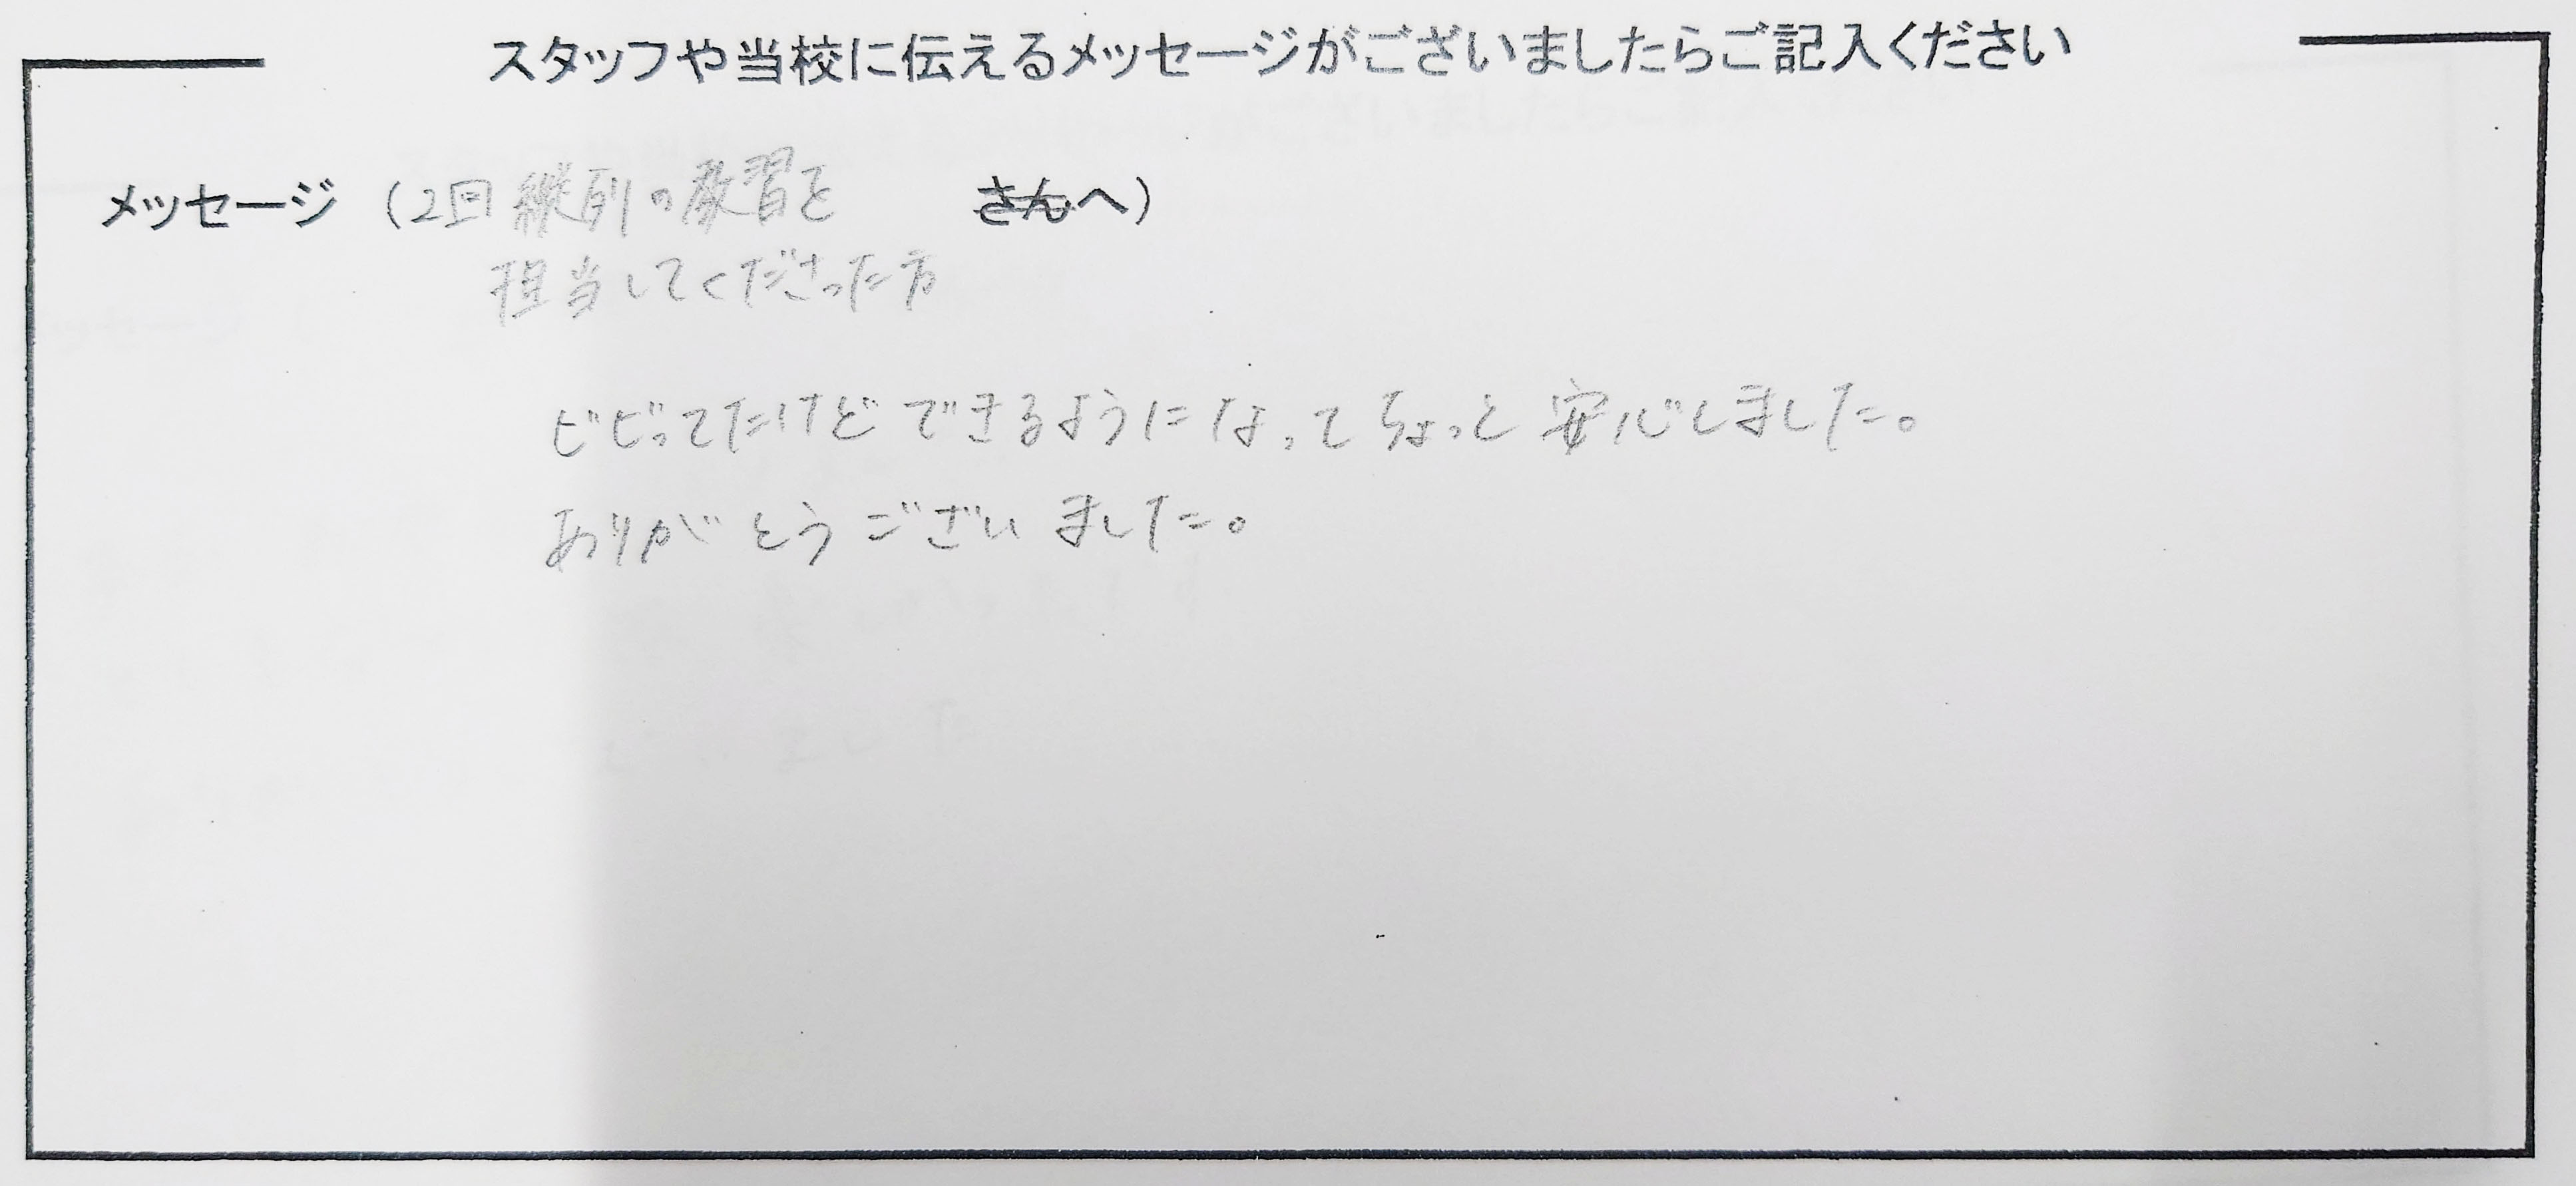 スタッフや当校に伝えるメッセージがございましたらご記入ください
メッセージ（2回縦列の教習を さんへ）
担当してくださった方
ビビってたけどできるようになってちょっと安心しました。
ありがとうございました。